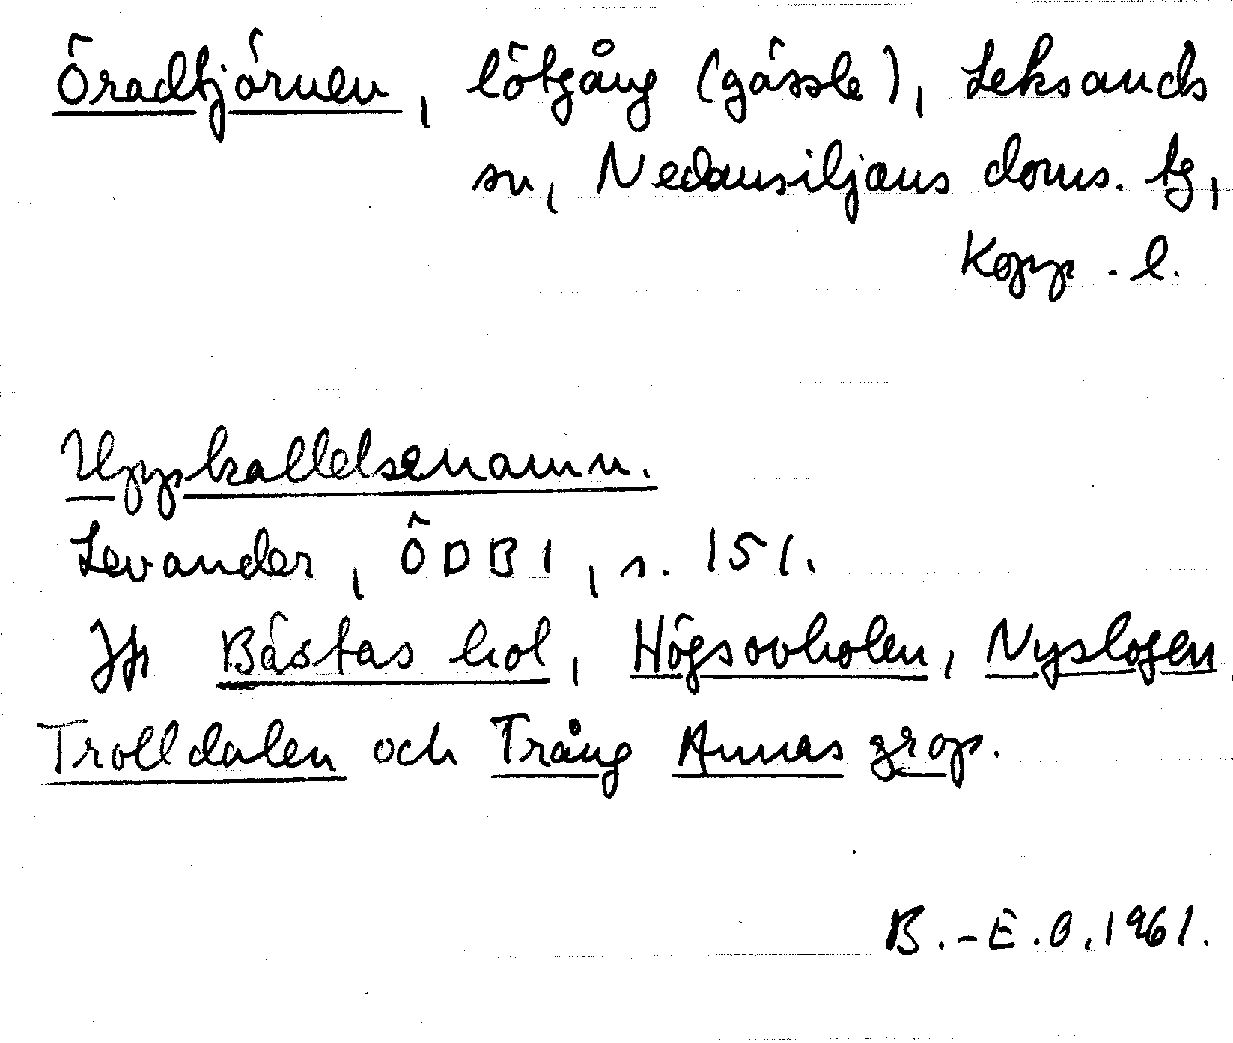 Öradtjärnen, lötgång (gässle), Leksands
sn, Nedansiljans doms. tg,
Kopp. l.
Uppkallelsenamn.
Levander, ÖDB I, s. 151.
Jfr Bästas hol, Högsovholen, Nyslogen
Trolldalen och Trång Annas grop.
B.-E.O. 1961.